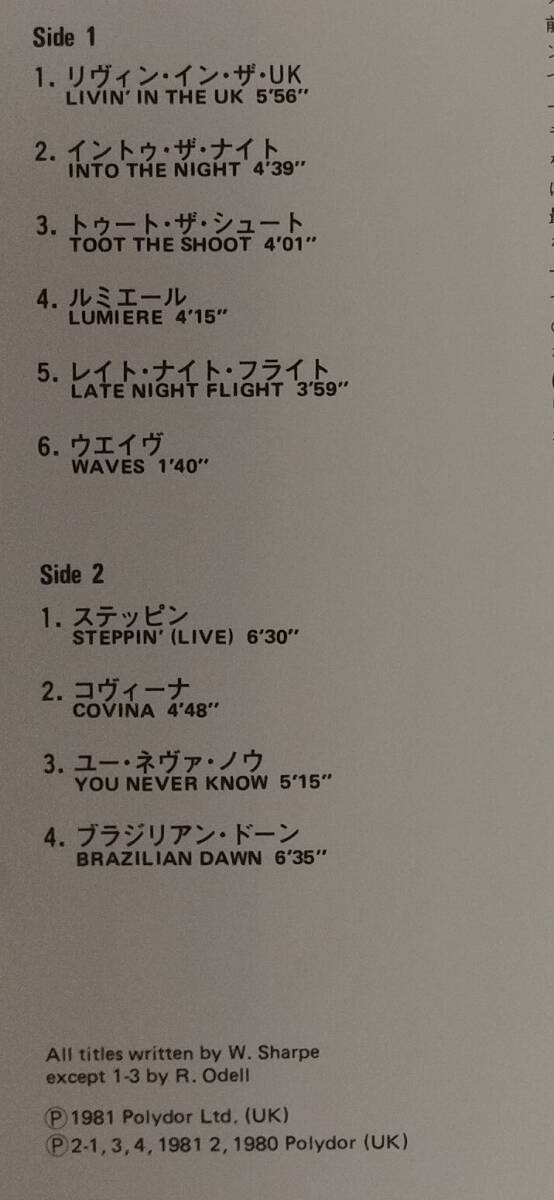 Side 1
1. リヴィン・イン・ザ・UK
LIVIN' IN THE UK 5'56"
2. イントゥ・ザ・ナイト
INTO THE NIGHT 4'39"
3. トゥート・ザ・シュート
TOOT THE SHOOT 4'01"
4. ルミエール
LUMIERE 4'15"
5. レイト・ナイト・フライト
LATE NIGHT FLIGHT 3'59"
6. ウエイヴ
WAVES 1'40"
Side 2
1. ステッピン
STEPPIN' (LIVE) 6'30"
2. コヴィーナ
COVINA 4'48"
3. ユー・ネヴァ・ノウ
YOU NEVER KNOW 5'15"
4. ブラジリアン・ドーン
BRAZILIAN DAWN 6'35"
All titles written by W. Sharpe
except 1-3 by R. Odell
Ⓟ1981 Polydor Ltd. (UK)
Ⓟ2-1, 3, 4, 1981 2, 1980 Polydor (UK)